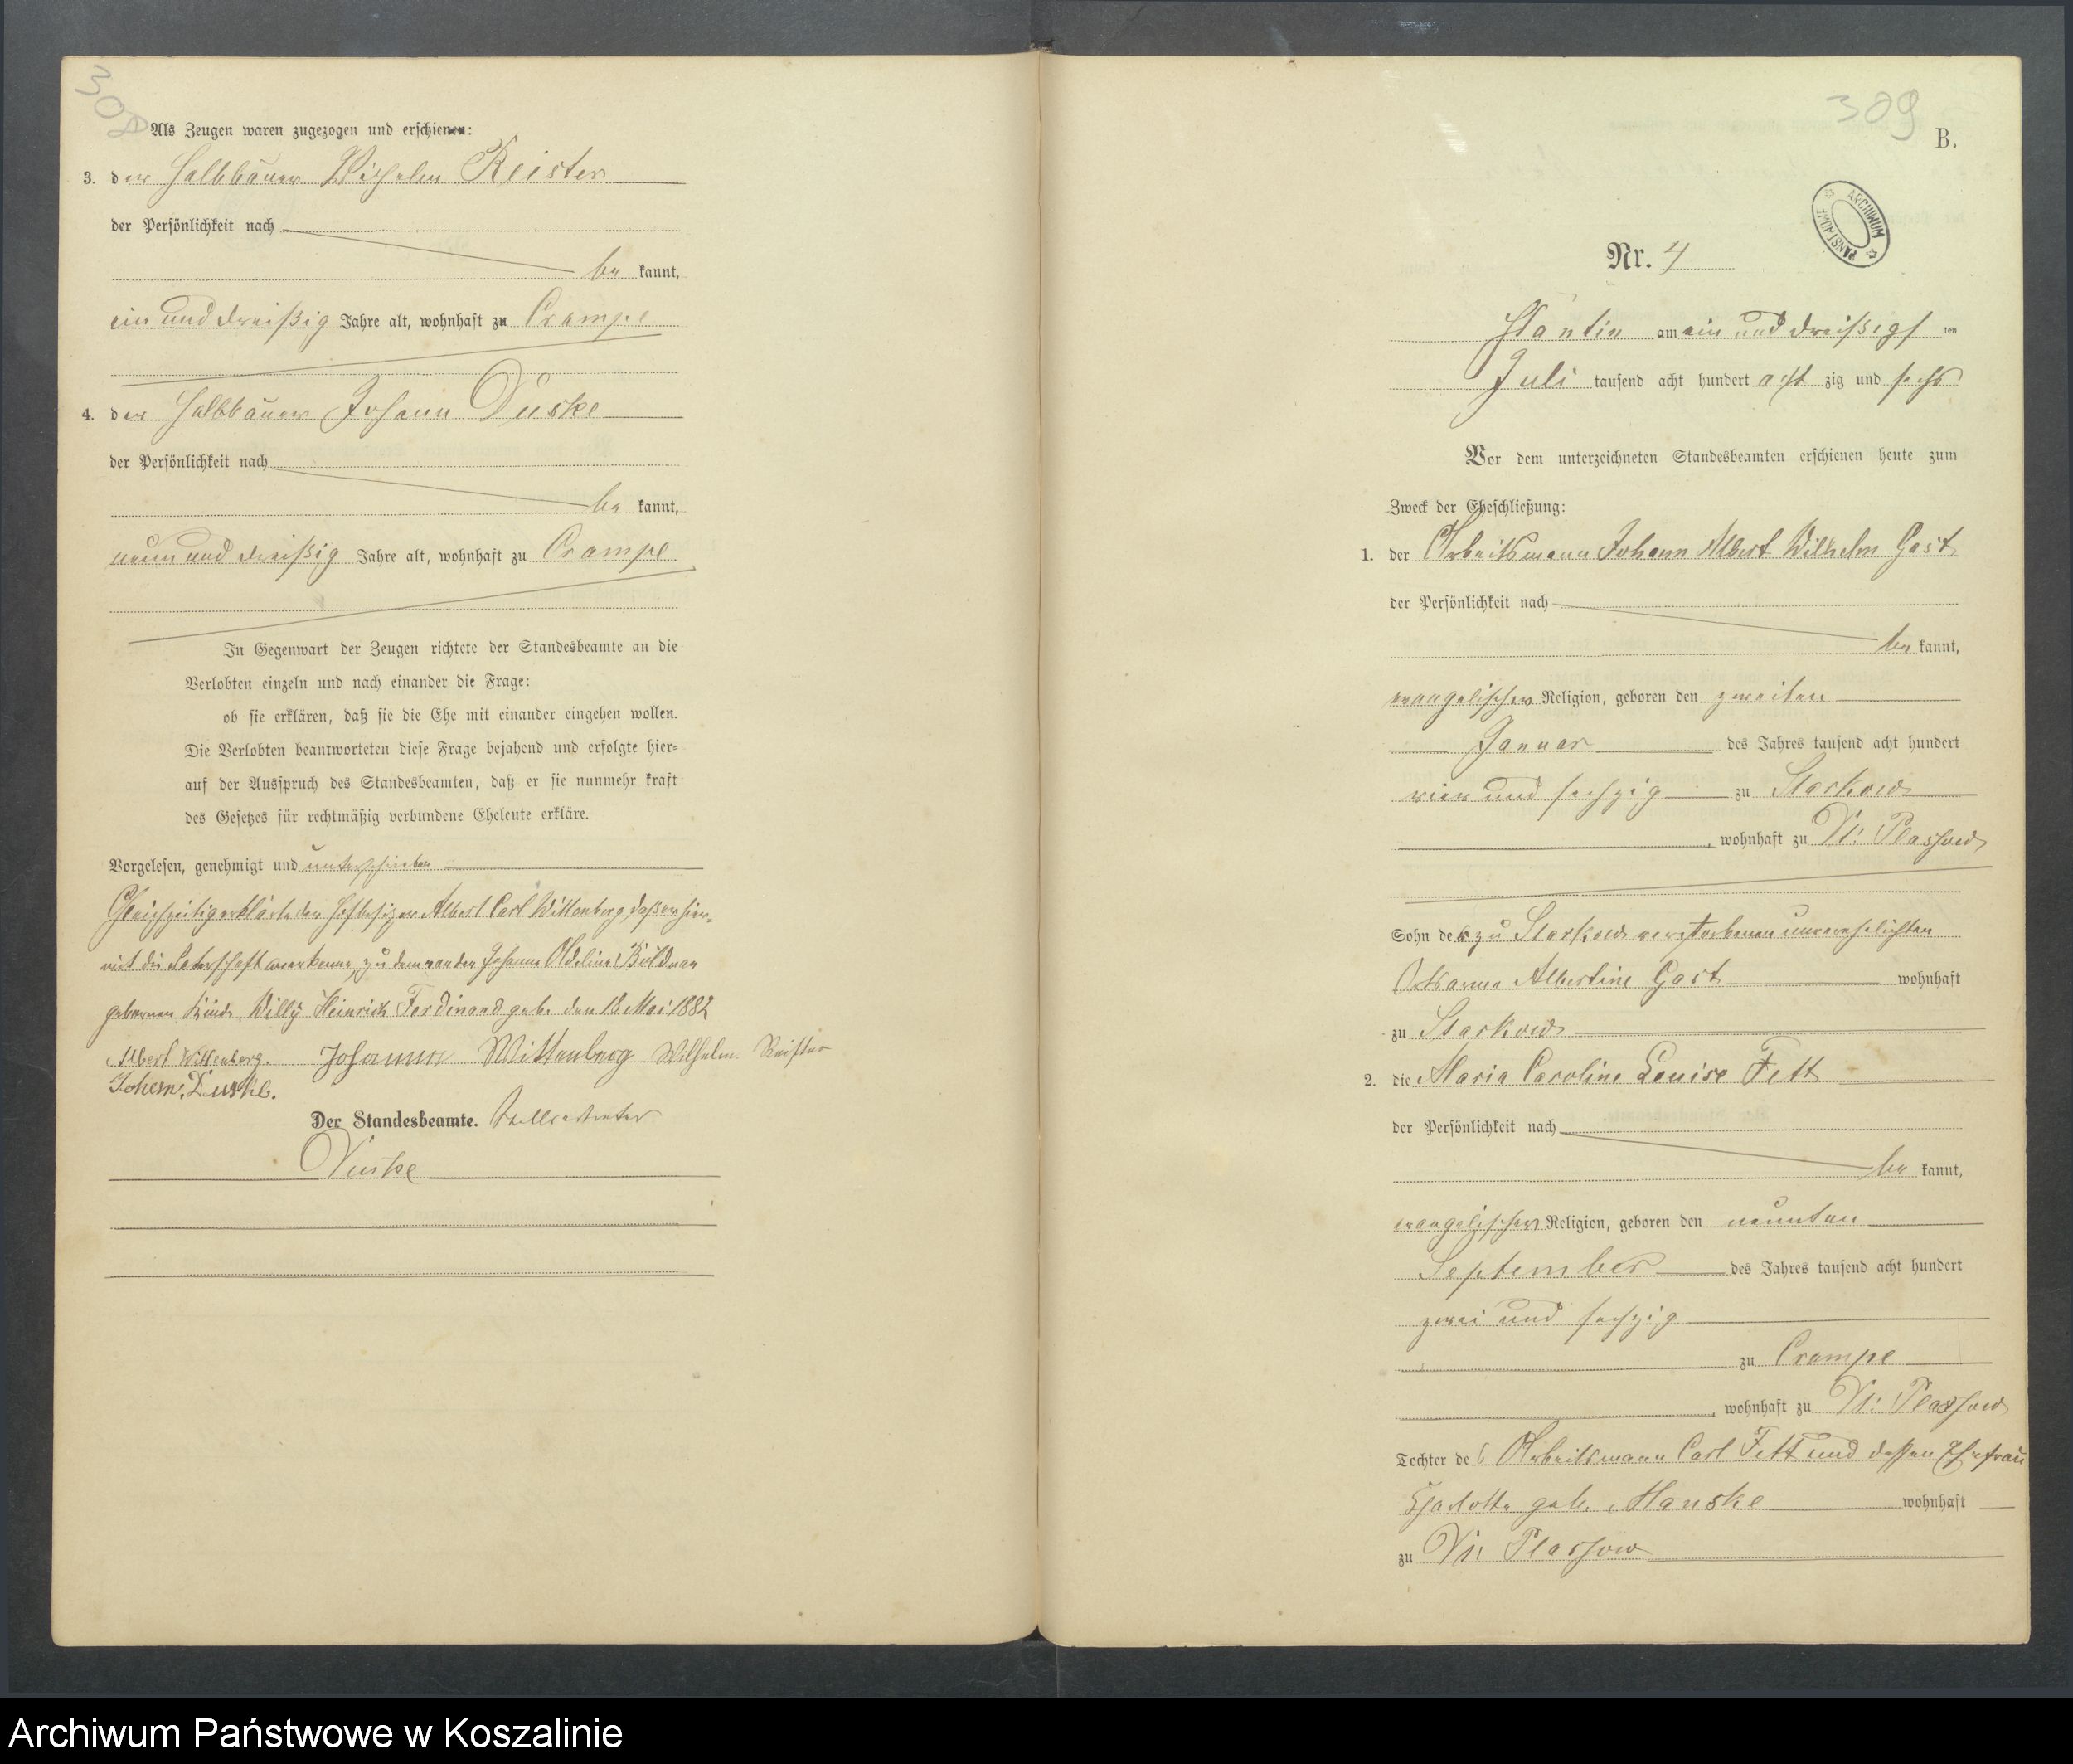 308
Als Zeugen waren zugezogen und erschienen:
3. der Halbbauer Wilhelm Reister
der Persönlichkeit nach
be kannt,
ein und dreißig Jahre alt, wohnhaft zu Crampe
4. der Halbbauer Johann Duske
der Persönlichkeit nach
be kannt,
neun und dreißig Jahre alt, wohnhaft zu Crampe
In Gegenwart der Zeugen richtete der Standesbeamte an die
Verlobten einzeln und nach einander die Frage:
ob sie erklären, daß sie die Ehe mit einander eingehen wollen.
Die Verlobten beantworteten diese Frage bejahend und erfolgte hier=
auf der Ausspruch des Standesbeamten, daß er sie nunmehr kraft
des Gesetzes für rechtmäßig verbundene Eheleute erkläre.
Vorgelesen, genehmigt und unterschrieben
Gleichzeitig erklärte der Hofbesitzer Albert Carl Wittenberg, daß er hier-
mit die Vaterschaft anerkenne, zu dem von der Johanne Adeline
gebornen Kinde Willy Heinrich Ferdinand geb. den 18 Mai 1882
Albert Wittenberg. Johanne Wittenberg Wilhelm Reister
Johann Duske.
Der Standesbeamte. Stellvertreter
309
B.
ARCHIWUM PAŃSTWOWE
Nr. 4
am ein und dreißigs ten
Juli tausend acht hundert acht zig und sechs
Vor dem unterzeichneten Standesbeamten erschienen heute zum
Zweck der Eheschließung:
1. der Arbeitsmann Johann Albert Wilhelm Gast
der Persönlichkeit nach
be kannt,
evangelischer Religion, geboren den zweiten
Januar des Jahres tausend acht hundert
vier und sechzig zu Starkow
, wohnhaft zu Kl. Plassow
Sohn der zu Starkow verstorbenen unverehelichten
Albertine Gast wohnhaft
zu Starkow
2. die Maria Caroline Louise Fett
der Persönlichkeit nach
be kannt,
evangelischer Religion, geboren den neunten
September des Jahres tausend acht hundert
zwei und sechzig
zu Crampe
, wohnhaft zu Kl. Plassow
Tochter des Arbeitsmann Carl Fett und dessen Ehefrau
Charlotte geb. Manske wohnhaft
zu Kl. Plassow
Archiwum Państwowe w Koszalinie